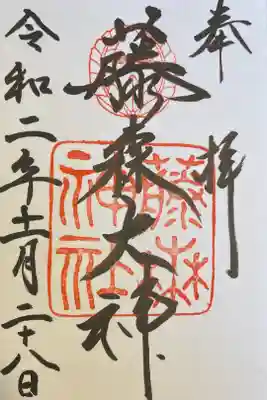 奉拝
藤森大神
令和二年十一月二十八日
藤森神社